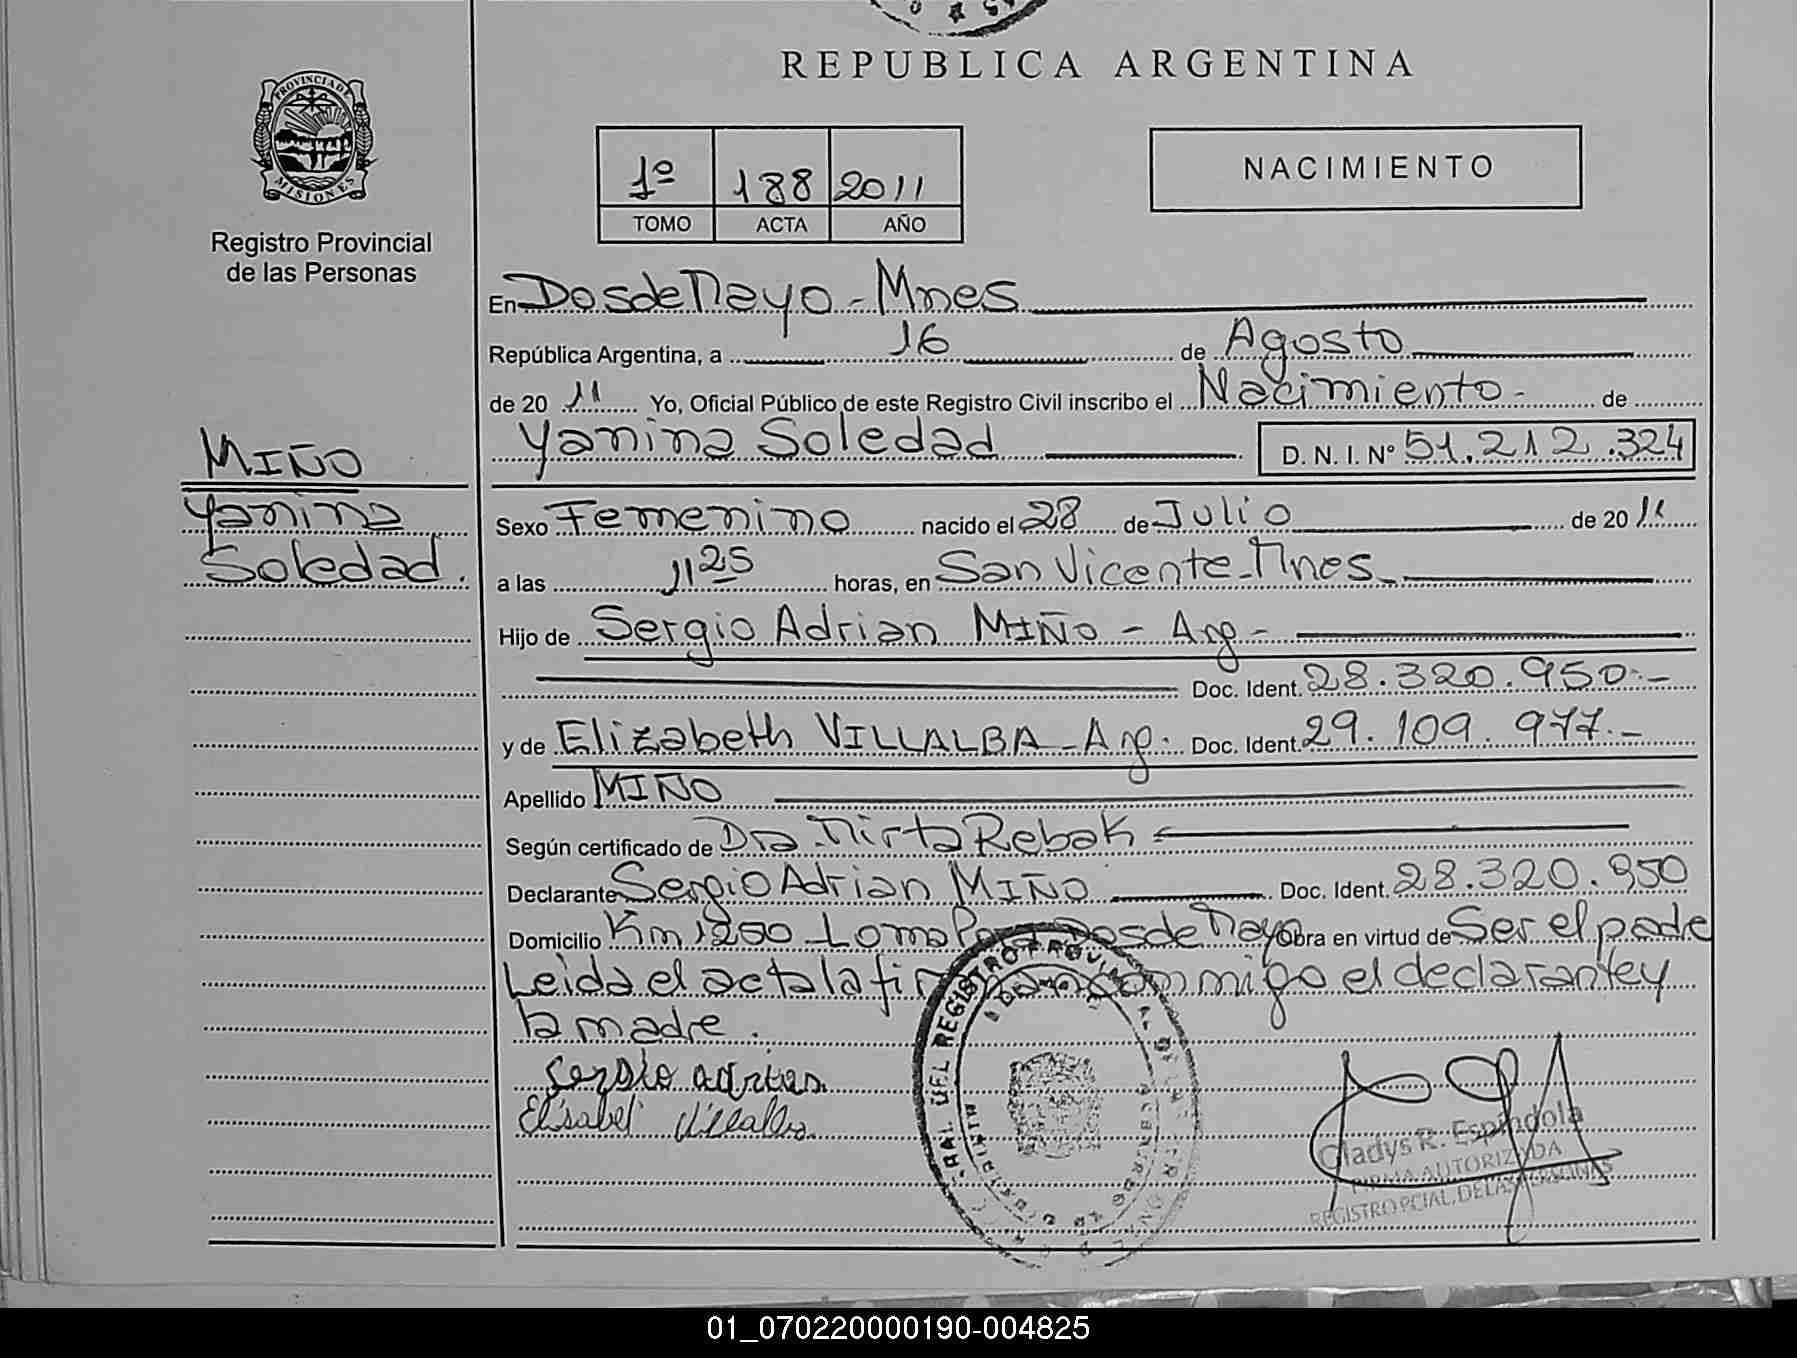 REPUBLICA ARGENTINA
PROVINCIA DE
MISIONES
Registro Provincial
de las Personas
1º 188 2011
TOMO ACTA AÑO
NACIMIENTO
En Dos de Mayo - Mnes
República Argentina, a 16 de Agosto
de 20 11 Yo, Oficial Público de este Registro Civil inscribo el Nacimiento - de
Yanina Soledad D. N. I. Nº 51.212.324
MIÑO
Yanina
Soledad.
Sexo Femenino nacido el 28 de Julio de 20 11
a las 11 25 horas, en San Vicente - Mnes -
Hijo de Sergio Adrian MIÑO - Arg -
Doc. Ident. 28.320.950.-
y de Elizabeth VILLALBA - Arg. Doc. Ident. 29.109.977.-
Apellido MIÑO
Según certificado de Dra. Mirta Rebak
Declarante Sergio Adrian MIÑO Doc. Ident. 28.320.950
Domicilio Km 1250 Loma Dos de Mayo Obra en virtud de Ser el padre
Leida el acta la firman conmigo el declarante y
la madre.
Sergio adrian
Elisabel Villalba
Gladys R. Espíndola
FIRMA AUTORIZADA
REGISTRO PCIAL. DE LAS PERSONAS
01_070220000190-004825